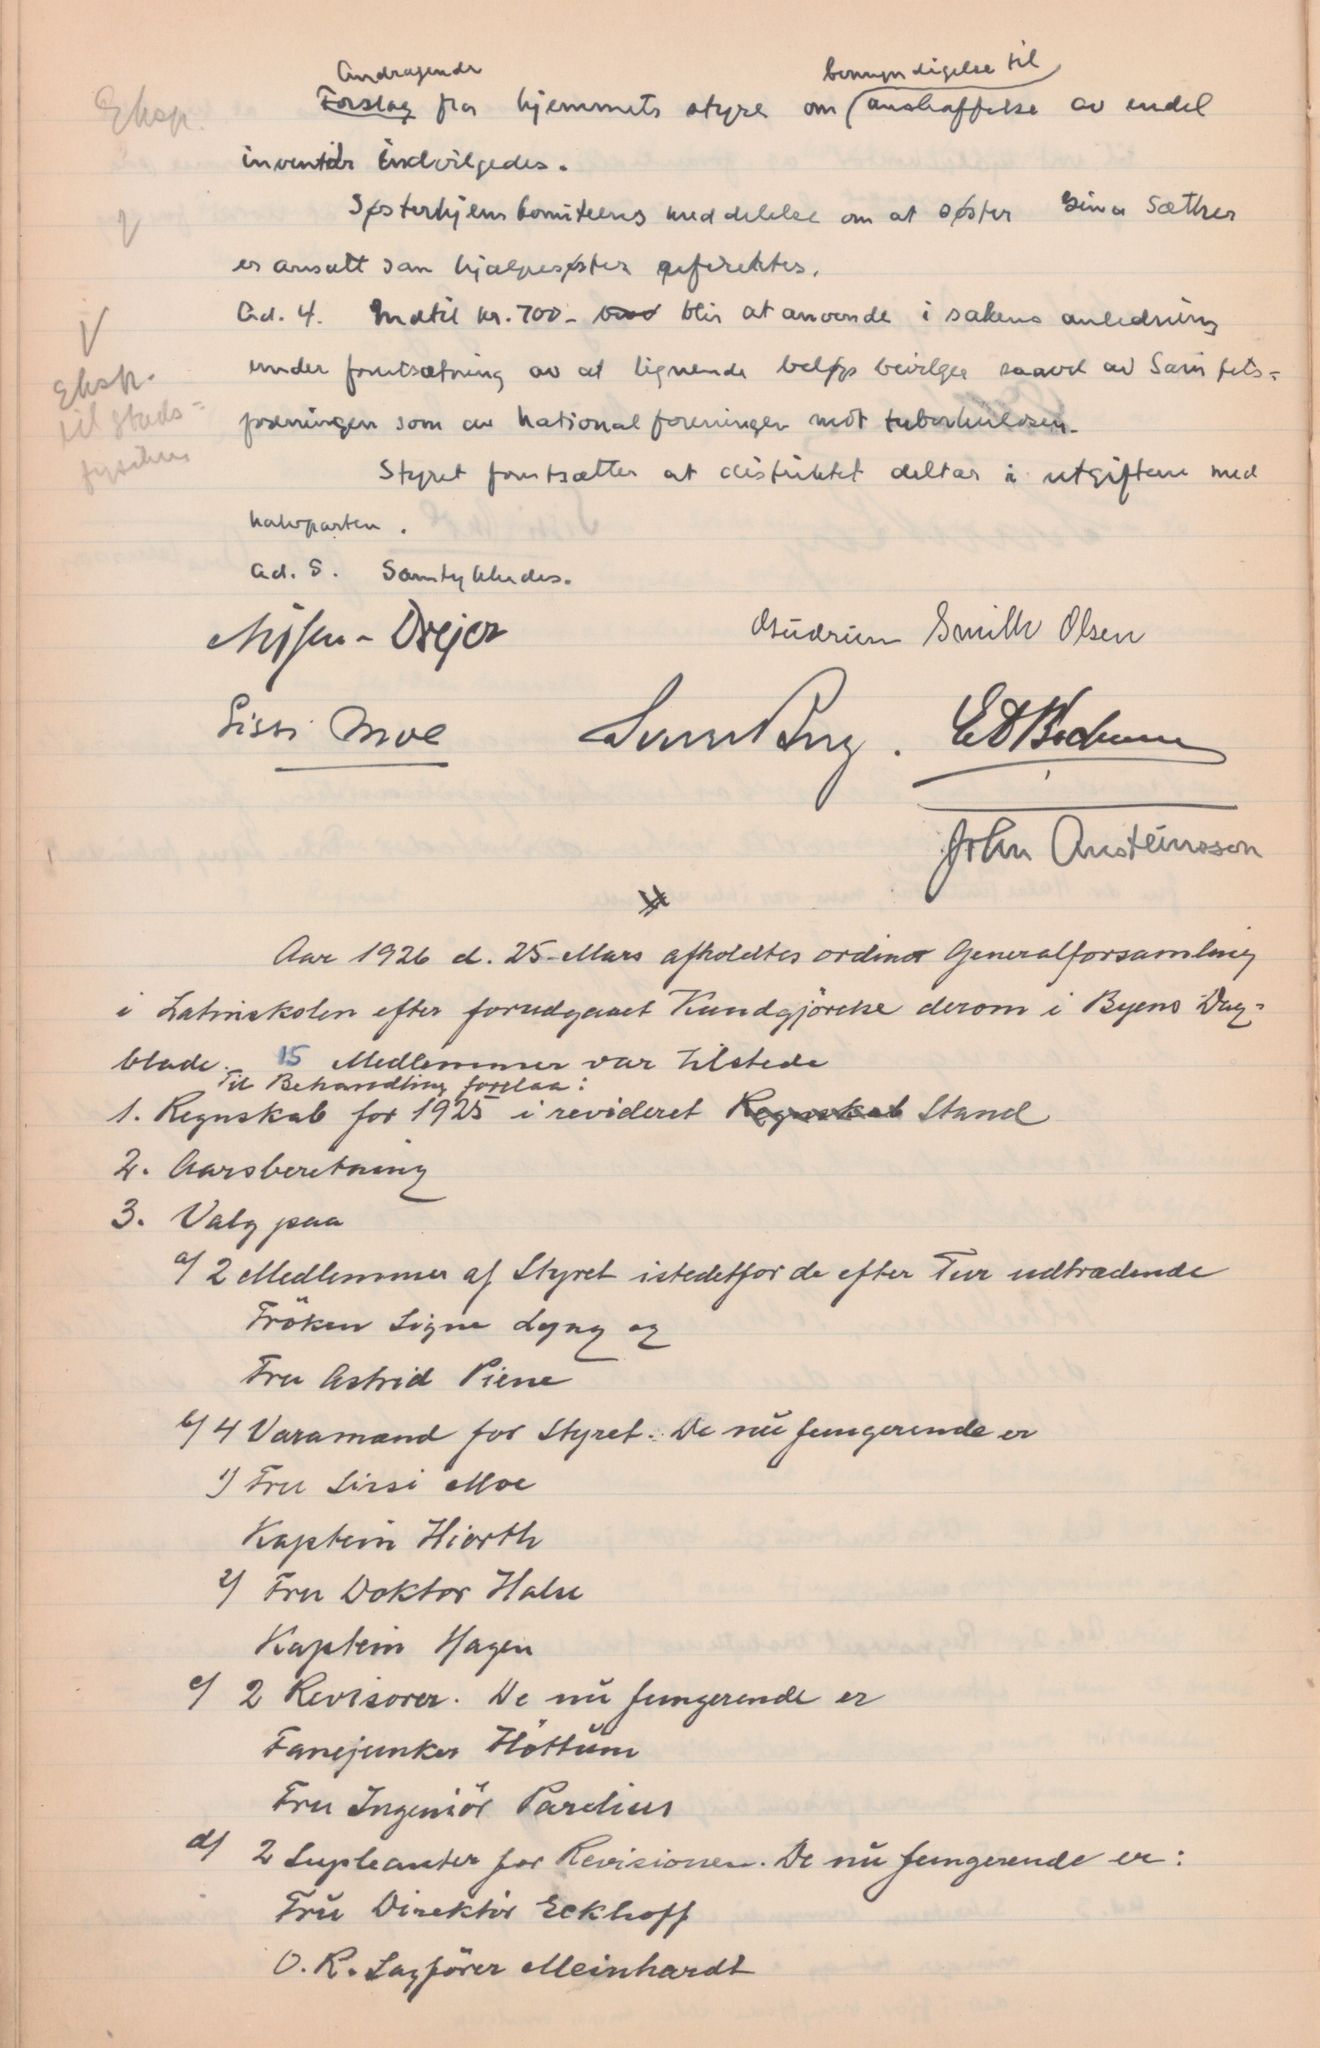 Andragende
benyndigelse til
Eksp.
Forslag fra hjemmets styre om anskaffelse av endel
inventar indvilgedes.
Søsterhjemskomiteens meddelelse om at søster Sina Sæther
er ansatt som hjælpesøster refertes.
Ad. 4. Indtil kr. 700 - blir at anvende i sakens anledning
under forutsætning av at lignende beløp bevilges saavel av Sanitets-
foreningen som av Nationalforeningen mot tuberkulosen.
Eksp.
til stads-
fysikus
Styret forutsætter at distriktet deltar i utgiftene med
halvparten.
Ad. 5. Samtykkedes.
Nissen-Drejer
Gudrun Smith Olsen
Sissi Moe
John Austeinsson
Aar 1926 d. 25 Mars afholdtes ordinær Generalforsamling
i Latinskolen efter forudgaaet Kundgjörelse derom i Byens Dag-
blade. 15 Medlemmer var tilstede
Til Behandling forelaa:
1. Regnskab for 1925 i revideret Regnskab Stand
2. Aarsberetning
3. Valg paa
a/ 2 Medlemmer af Styret istedetfor de efter Tur udtrædende
Fröken Signe Lyng og
Fru Astrid Piene
b/ 4 Varamænd for Styret. De nu fungerende er
1) Fru Sissi Moe
Kaptein Hiorth
2) Fru Doktor Halse
Kaptein Hagen
c/ 2 Revisorer. De nu fungerende er
Fanejunker Höttum
Fru Ingeniör Parelius
d/ 2 Supleanter for Revisionen. De nu fungerende er:
Fru Direktör Eckhoff
O. R. Sagförer Meinhardt